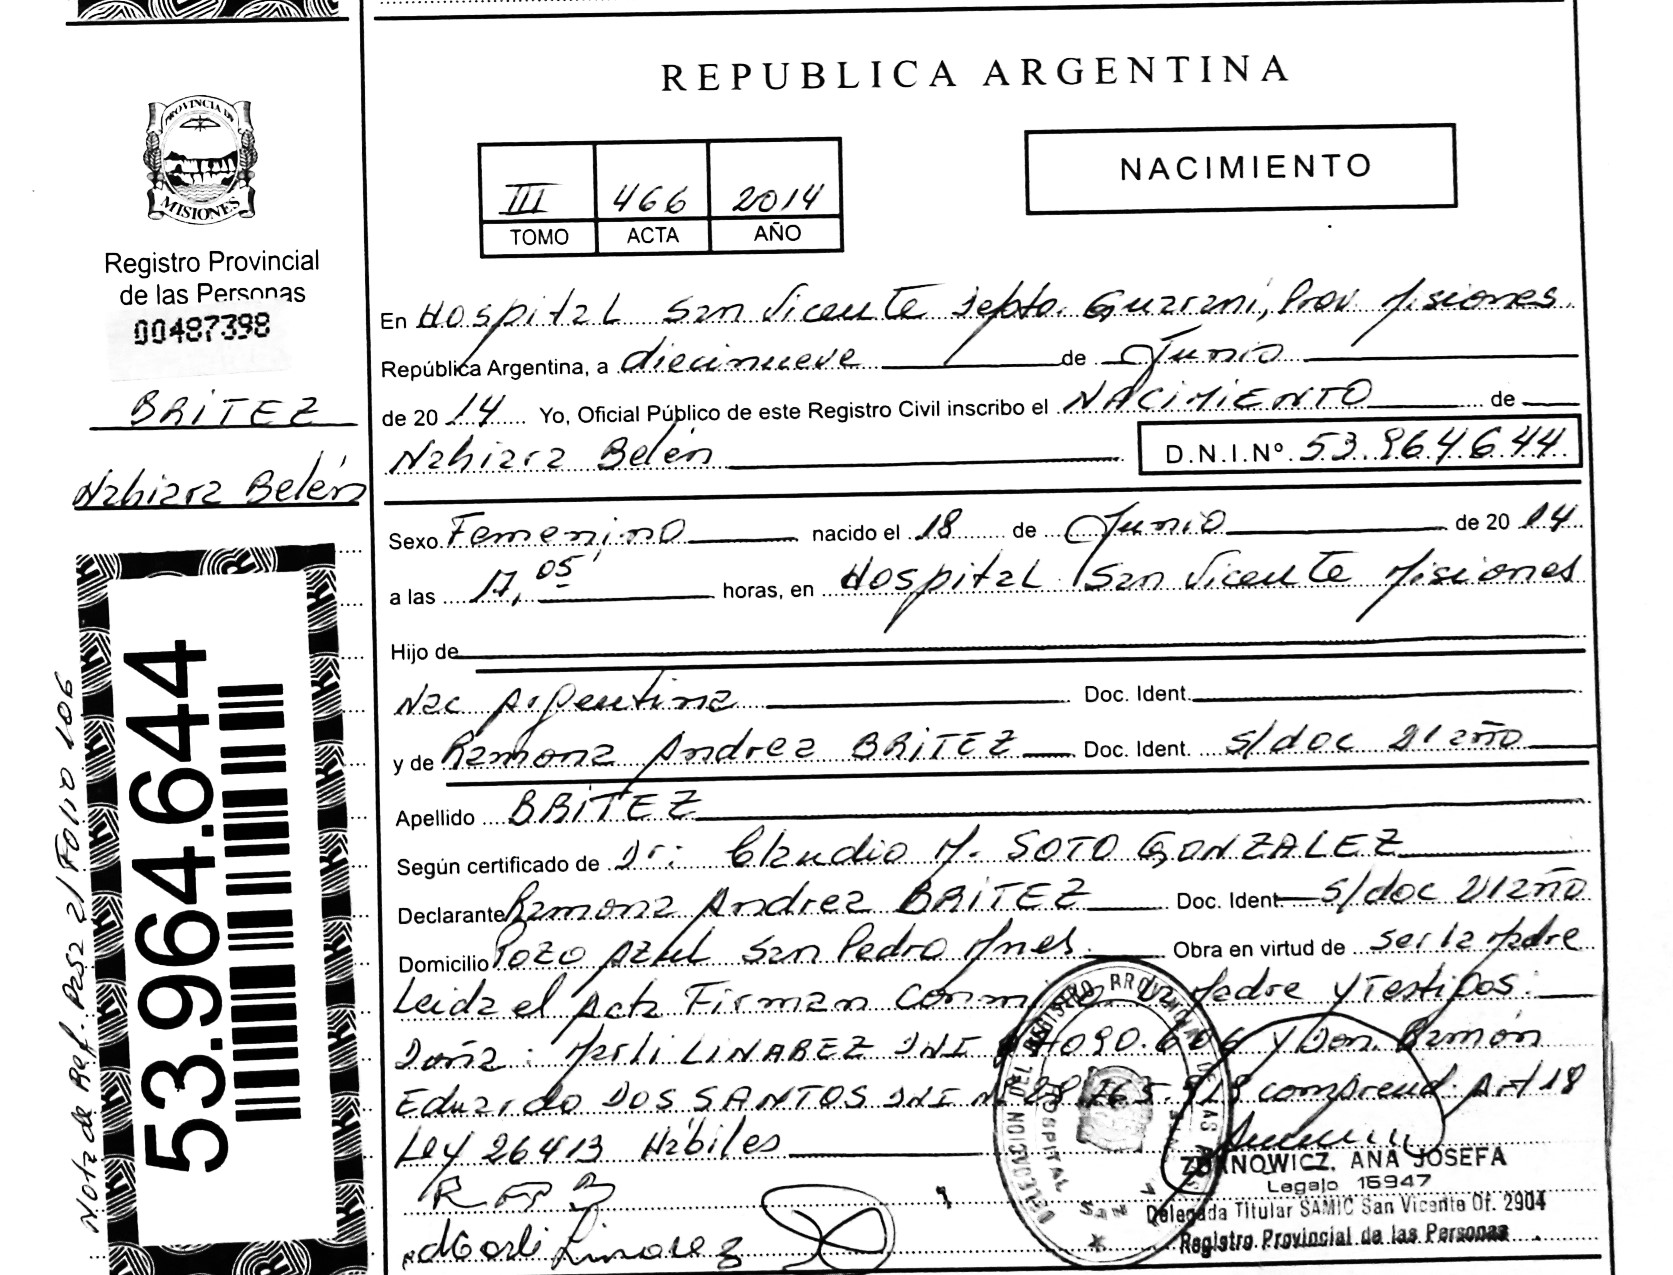 REPUBLICA ARGENTINA
PROVINCIA DE
MISIONES
Registro Provincial
de las Personas
00487398
BRITEZ
Nahiara Belén
53.964.644
Nota de Ref. Pasa 2/Folio 106
III 466 2014
TOMO ACTA AÑO
NACIMIENTO
En Hospital San Vicente Depto. Guaraní, Prov Misiones
República Argentina, a diecinueve de Junio
de 20 14 Yo, Oficial Público de este Registro Civil inscribo el NACIMIENTO de
Nahiara Belén D.N.I.Nº 53.964.644
Sexo Femenino nacido el 18 de Junio de 20 14
a las 17,05 horas, en Hospital San Vicente Misiones
Hijo de
Nac Argentina Doc. Ident.
y de Ramona Andrea BRITEZ Doc. Ident. s/doc 21 año
Apellido BRITEZ
Según certificado de Dr: Claudio M. SOTO GONZALEZ
Declarante Ramona Andrea BRITEZ Doc. Ident s/doc 21 año
Domicilio Pozo Azul San Pedro Mnes. Obra en virtud de ser la Madre
Leida el Acta Firman Conmigo Madre y Testigos:
Doña: Marli LINAREZ DNI y Don Ramón
Eduardo DOS SANTOS DNI Nº comprend. Art 18
Ley 26413 Hábiles
R A B
Marli Linarez
DELEGACION DEL REGISTRO PROVINCIAL DE LAS
HOSPITAL SAN
ZDANOWICZ, ANA JOSEFA
Legajo 15947
Delegada Titular SAMIC San Vicente Of. 2904
Registro Provincial de las Personas